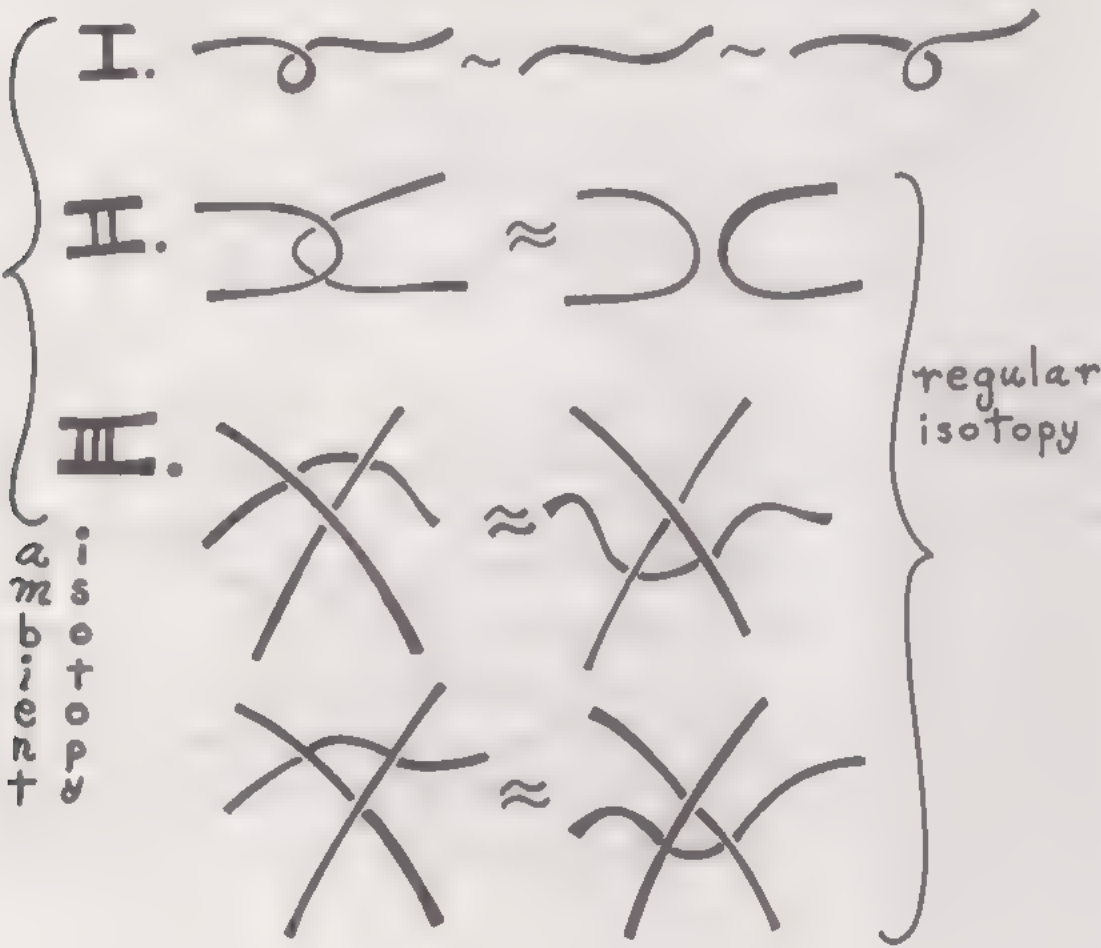 I. ~ ~
II. ≈
III. ≈
≈
regular
isotopy
ambient
isotopy